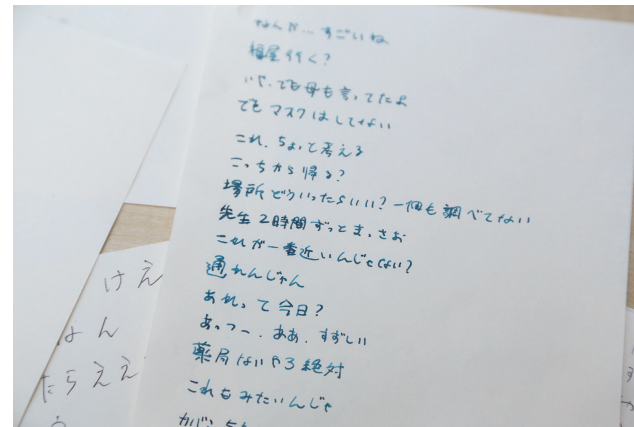 なんか…すごいね
福屋行く?
いや、でも母も言ってたよ
でもマスクはしてない
これ、ちょっと考える
こっちから帰る?
場所どういったらいい?一個も調べてない
先生2時間ずっとまっさお
これが一番近いんじゃない?
通れんじゃん
あれって今日?
あっつー、ああ、すずしい
薬局ないやろ絶対
これもみたいんじゃ
カバン
けえ
なん
たらええ